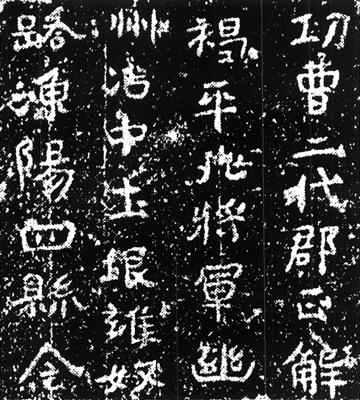 功曹二代郡正解
褐平北將軍幽
州治中土垠雍奴
路漁陽四縣令